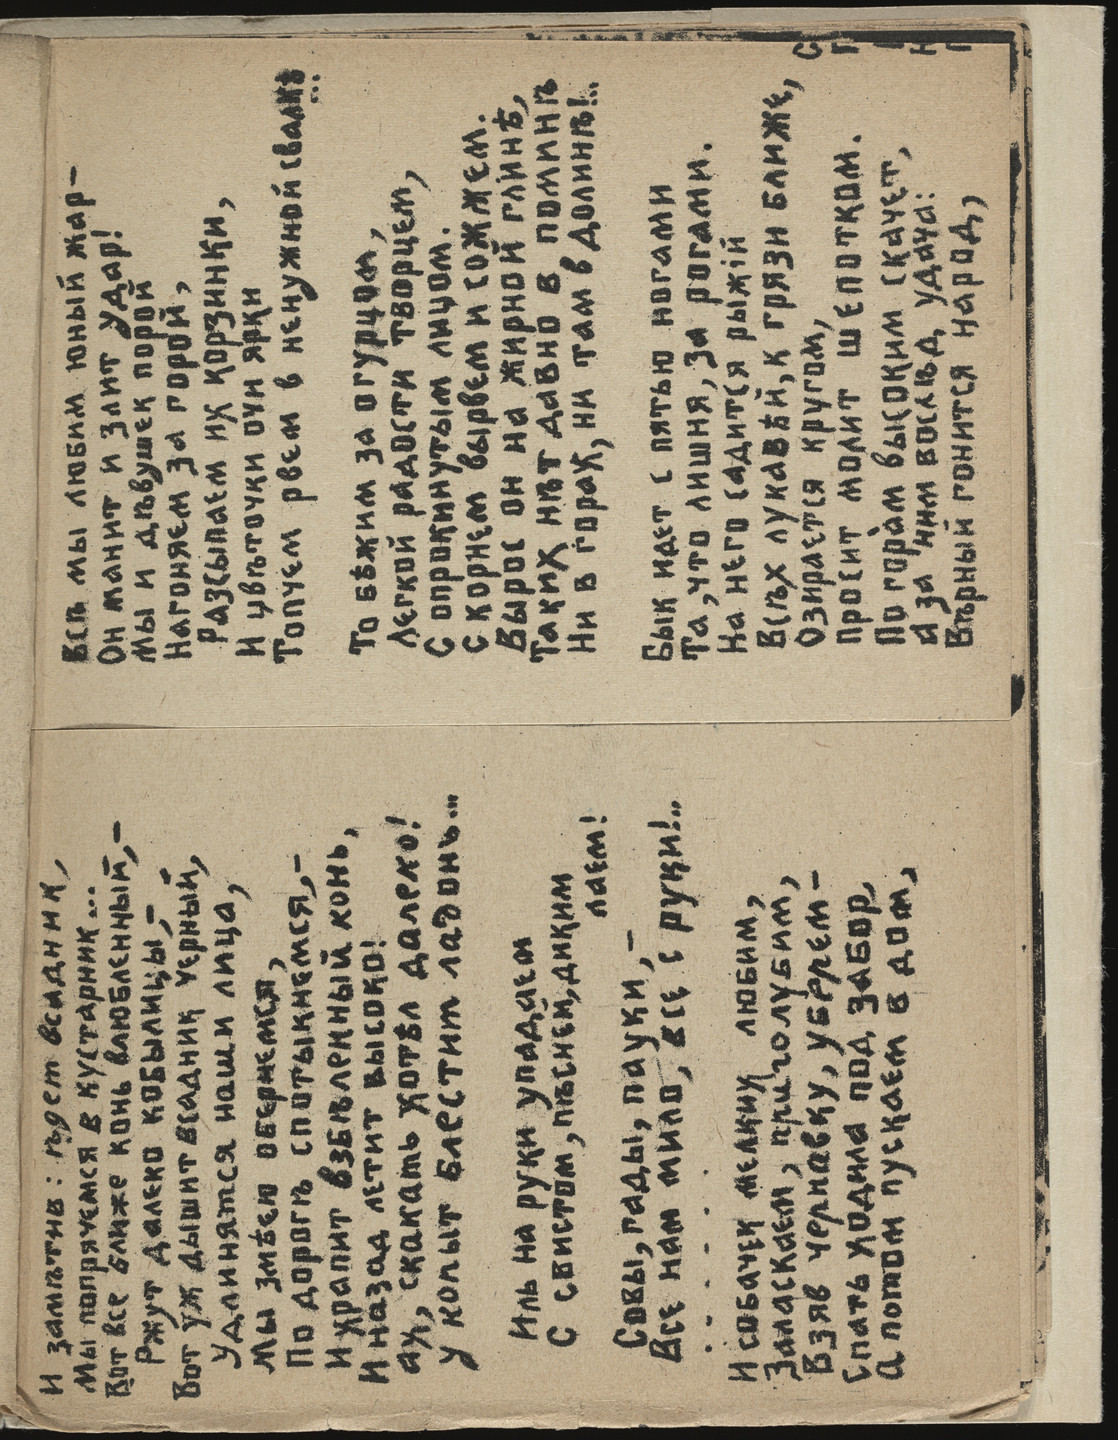 И замѣтив: ѣдет всадник,
Мы попрячемся в кустарник...
Вот все ближе конь влюбленный,—
Ржут далеко кобылицы,—
Вот уж дышит всадник черный,
Удлинятся наши лица,
Мы змѣею обернемся,
По дорогѣ спотыкнемся,—
И храпит взбѣленный конь,
И назад летит высоко!
ах, скакать хотѣл далеко!
у копыт блестит ладонь...
Иль на руки упадаем
С свистом, пѣсней, диким
лаем!
Совы, гады, пауки,—
Все нам мило, все с руки!..
. . . . . . .
И собачек мелких любим,
Заласкаем, приголубим,
Взяв чернавку, уберем—
Спать ходила под забор,
А потом пускаем в дом,
Всѣ мы любим юный жар—
Он манит и злит удар!
Мы и дѣвушек порой
Нагоняем за горой,
Разсыпаем их корзинки,
И цвѣточки очи ярки
Топчем рвем в ненужной свалкѣ...
То бѣжим за огурцом,
Легкой радости творцем,
С опрокинутым лицом.
С корнем вырвем и сожжем.
Вырос он на жирной глинѣ,
Таких нѣт давно в поминѣ
Ни в горах, ни там в долинѣ!..
Бык идет с пятью ногами
Та, что лишня, за рогами.
На него садится рыжій
Всѣх лукавѣй, к грязи ближе,
Озирается кругом,
Просит молит шепотком.
По горам высоким скачет,
А за ним вослѣд удача:
Вѣрный гонится народ,